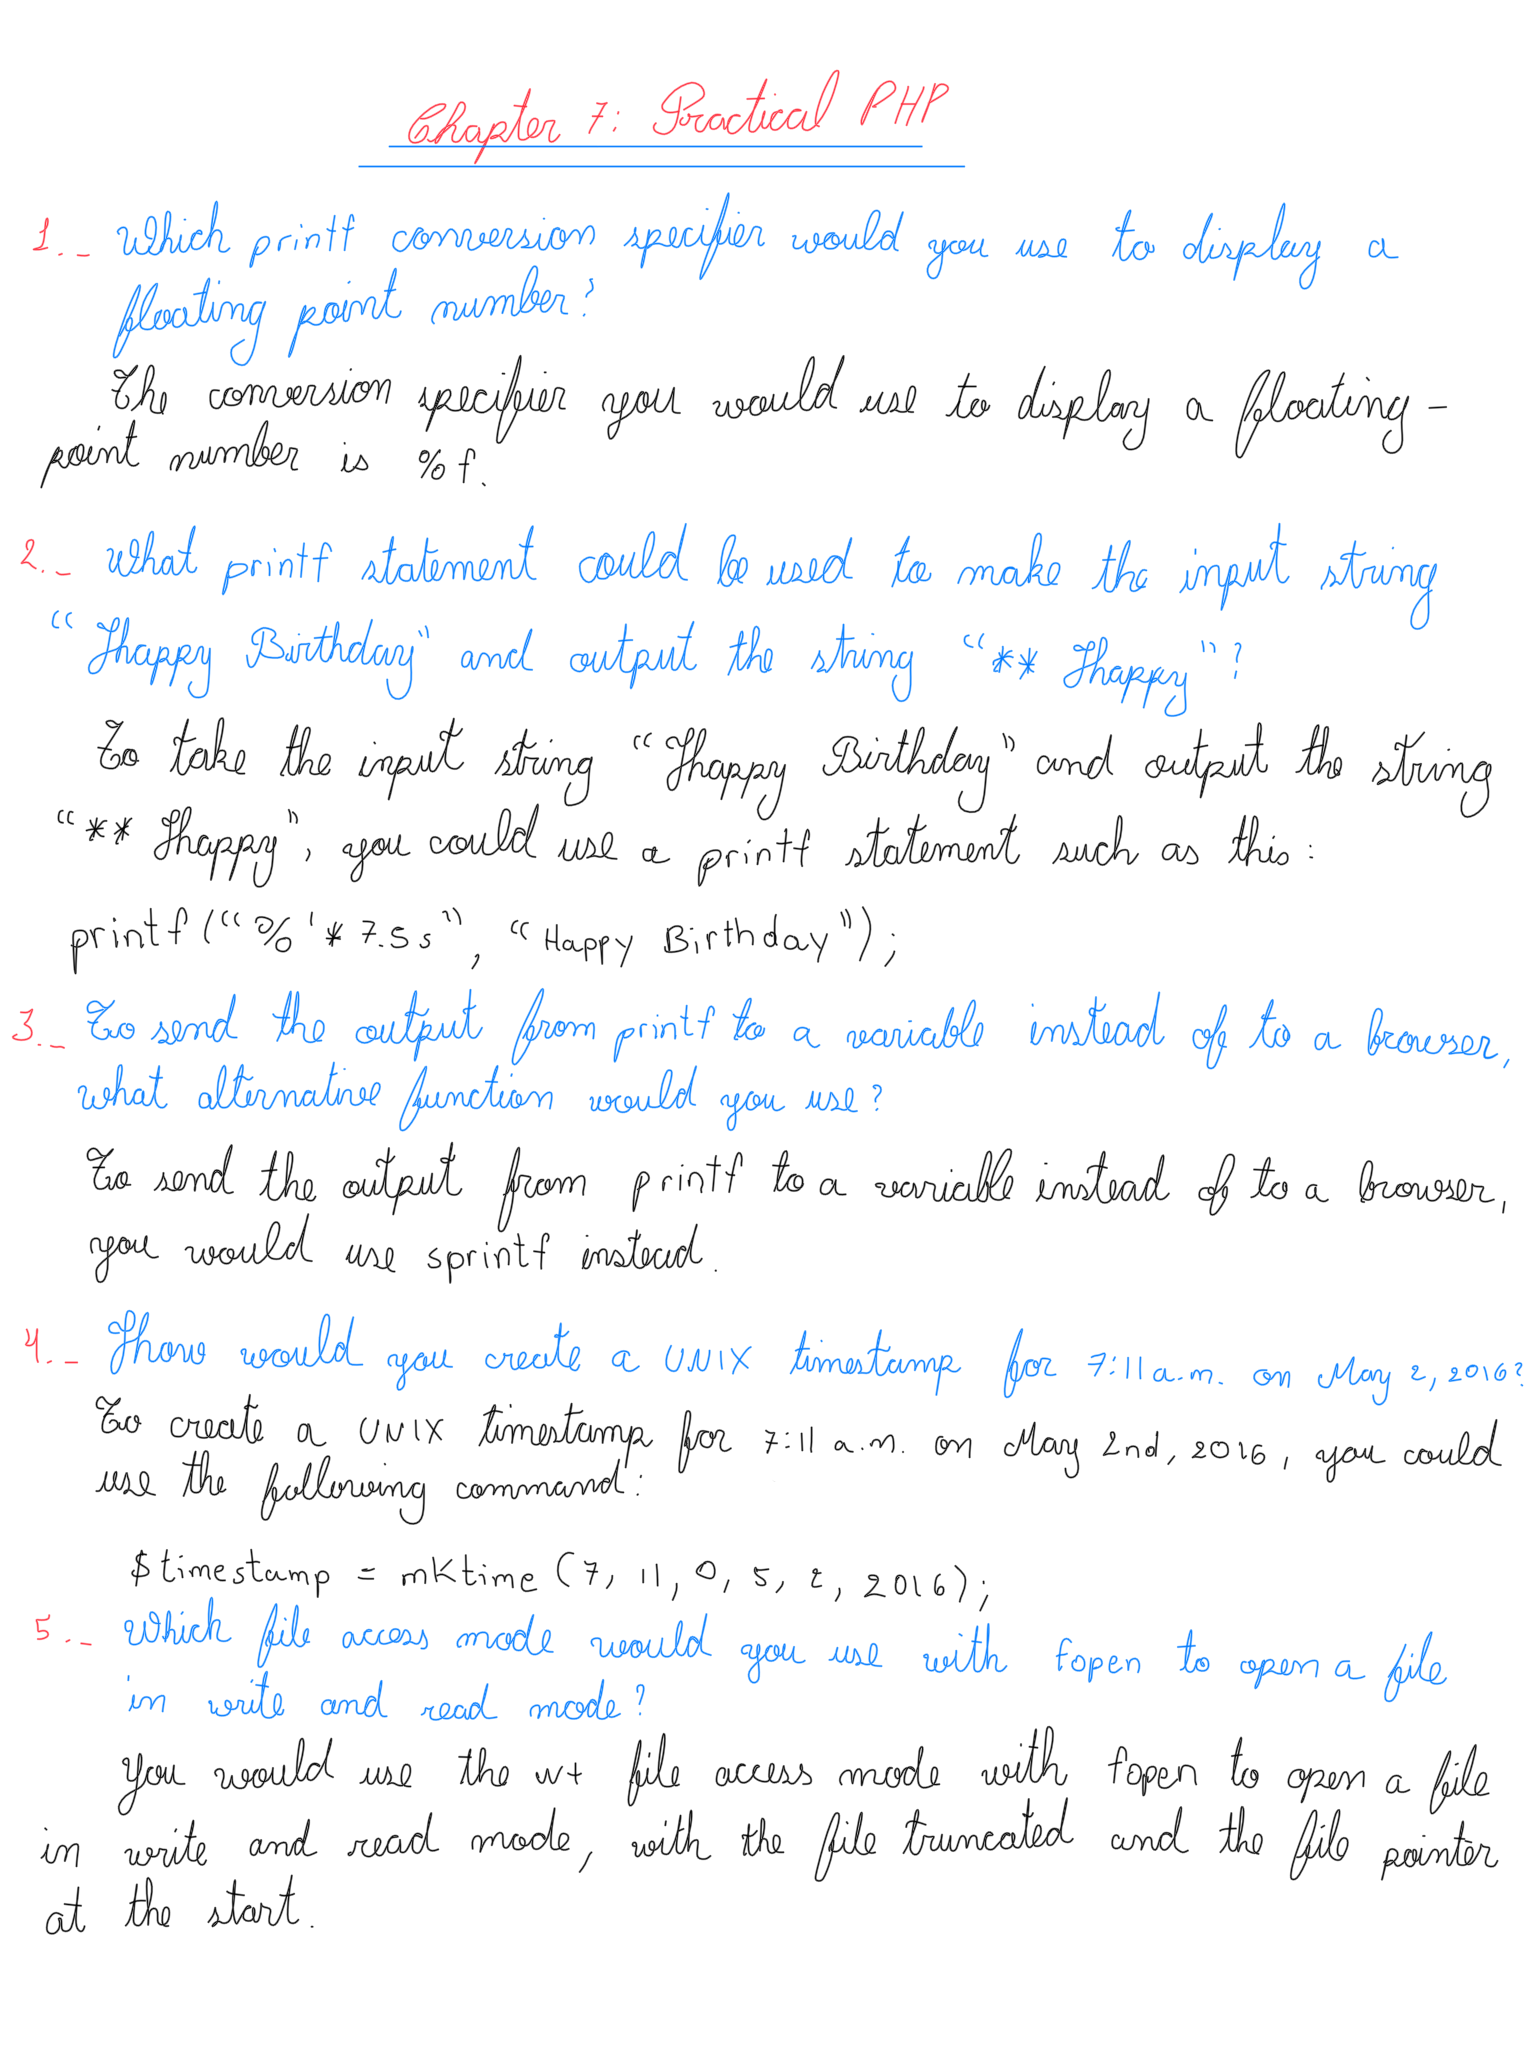 Chapter 7: Practical PHP
1.- Which printf conversion specifier would you use to display a
floating point number?
The conversion specifier you would use to display a floating-
point number is %f.
2.- What printf statement could be used to make the input string
"Happy Birthday" and output the string "** Happy"?
To take the input string "Happy Birthday" and output the string
"** Happy", you could use a printf statement such as this:
printf("%'*7.5s", "Happy Birthday");
3.- To send the output from printf to a variable instead of to a browser,
what alternative function would you use?
To send the output from printf to a variable instead of to a browser,
you would use sprintf instead.
4.- How would you create a UNIX timestamp for 7:11 a.m. on May 2, 2016?
To create a UNIX timestamp for 7:11 a.m. on May 2nd, 2016, you could
use the following command:
$timestamp = mktime(7, 11, 0, 5, 2, 2016);
5.- Which file access mode would you use with fopen to open a file
in write and read mode?
You would use the w+ file access mode with fopen to open a file
in write and read mode, with the file truncated and the file pointer
at the start.